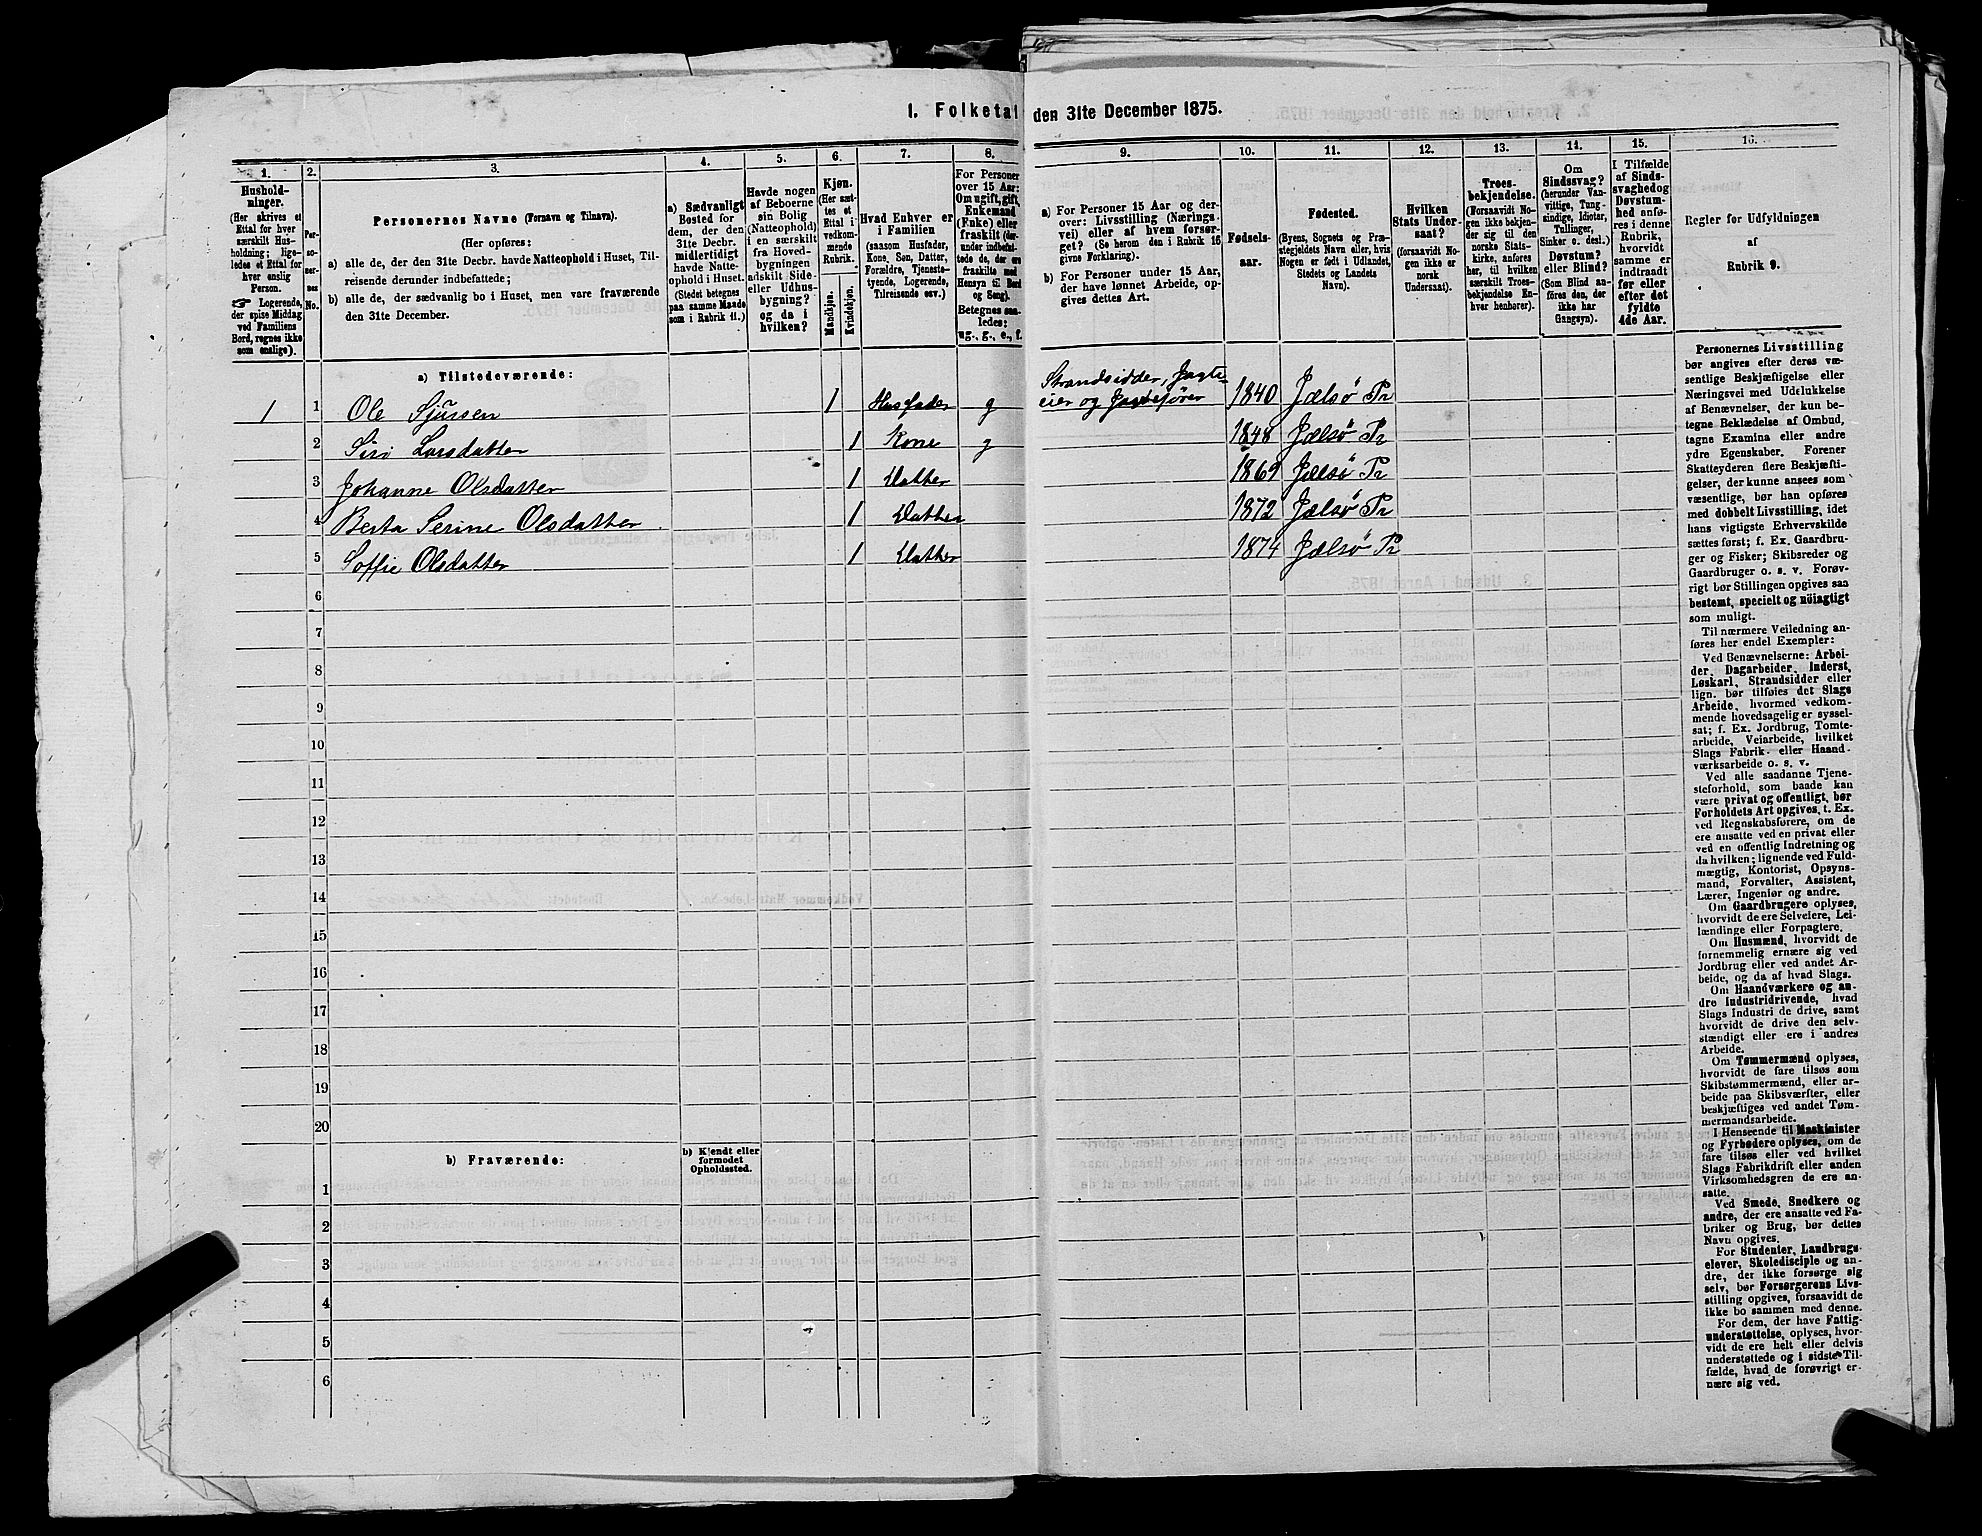 1. Folketal den 31te December 1875.
1.
Hushold-
ninger.
(Her skrives et
Ettal for hver
særskilt Hus-
holdning; lige-
ledes et Ettal for
hver enslig
Person.
☞ Logerende,
der spise Middag
ved Familiens
Bord, regnes ikke
som enslige).
2.
Per-
soner-
nes
No.
3.
Personernes Navne (Fornavn og Tilnavn).
(Her opføres:
a) alle de, der den 31te Decbr. havde Natteophold i Huset, Til-
reisende derunder indbefattede;
b) alle de, der sædvanlig bo i Huset, men vare fraværende
den 31te December.
4.
a) Sædvanligt
Bosted for
dem, der den
31te Decbr.
midlertidigt
havde Natte-
ophold i Huset.
(Stedet betegnes
paa samme Maade
som i Rubrik 11.)
5.
Havde nogen
af Beboerne
sin Bolig
(Natteophold)
i en særskilt
fra Hoved-
bygningen
adskilt Side-
eller Udhus-
bygning?
og da i
hvilken?
6.
Kjøn.
(Her sæt-
tes et
Ettal i
vedkom-
mende
Rubrik.)
Mandkjøn.
Kvindekjøn.
7.
Hvad Enhver er
i Familien
(saasom Husfader,
Kone, Søn, Datter,
Forældre, Tjeneste-
tyende, Logerende,
Tilreisende osv.)
8.
For Personer
over 15 Aar:
Om ugift, gift,
Enkemand
(Enke) eller
fraskilt (der-
under indbefat-
tede de, der ere
fraskilte med
Hensyn til Bord
og Seng).
Betegnes saa-
ledes:
ug., g., e., f.
9.
a) For Personer 15 Aar og der-
over: Livsstilling (Nærings-
vei) eller af hvem forsør-
get? (Se herom den i Rubrik 16
givne Forklaring).
b) For Personer under 15 Aar,
der have lønnet Arbeide, op-
gives dettes Art.
10.
Fødsels-
aar.
11.
Fødested.
(Byens, Sognets og Præ-
stegjeldets Navn eller, hvis
Nogen er født i Udlandet,
Stedets og Landets
Navn).
12.
Hvilken
Stats Under-
saat?
(forsaavidt No-
gen ikke er
norsk
Undersaat).
13.
Troes-
bekjendelse.
(Forsaavidt No-
gen ikke bekjen-
der sig til den
norske Stats-
kirke, anføres
her, til hvilken
særskilt Troes-
bekjendelse En-
hver henhører).
14.
Om
Sindssvag?
(herunder Van-
vittige, Tung-
sindige, Idioter,
Tullinger,
Sinker o. desl.)
Døvstum?
eller Blind?
(Som Blind an-
føres den, der
ikke har
Gangsyn).
15.
I Tilfælde
af Sinds-
svaghed og
Døvstum-
hed anfø-
res i denne
Rubrik,
hvorvidt
samme er
indtraadt
før eller
efter det
fyldte
4de Aar.
16.
Regler for Udfyldningen
af
Rubrik 9.
a) Tilstedeværende:
1 1 Ole Sjursen 1 Husfader g Strandsidder, Jagte-
eier og Jagtefører 1840 Jælsø Pr
2 Siri Larsdatter 1 Kone g 1848 Jælsø Pr
3 Johanne Olsdatter 1 Datter 1869 Jælsø Pr
4 Berta Serine Olsdatter 1 Datter 1872 Jælsø Pr
5 Soffie Olsdatter 1 Datter 1874 Jælsø Pr
6
7
8
9
10
11
12
13
14
15
16
17
18
19
20
b) Fraværende:
b) Kjendt eller
formodet
Opholdssted.
1
2
3
4
5
6
Personernes Livsstilling
bør angives efter deres væ-
sentlige Beskjæftigelse eller
Næringsvei med Udelukkelse
af Benævnelser, der kun be-
tegne Beklædelse af Ombud,
tagne Examina eller andre
ydre Egenskaber. Forener
Skatteyderen flere Beskjæfti-
gelser, der kunne ansees som
væsentlige, bør han opføres
med dobbelt Livsstilling, idet
hans vigtigste Erhvervskilde
sættes først; f. Ex. Gaardbru-
ger og Fisker; Skibsreder og
Gaardbruger o. s. v. Forøv-
rigt bør Stillingen opgives saa
bestemt, specielt og nöiagtigt
som muligt.
Til nærmere Veiledning an-
føres her endel Exempler:
Ved Benævnelserne: Arbei-
der, Dagarbeider, Inderst,
Løskarl, Strandsidder eller
lign. bør tilføies det Slags
Arbeide, hvormed vedkom-
mende hovedsagelig er syssel-
sat; f. Ex. Jordbrug, Tomte-
arbeide, Veiarbeide, hvilket
Slags Fabrik- eller Haand-
værksarbeide o. s. v.
Ved alle saadanne Tjene-
steforhold, som baade kan
være privat og offentligt, bør
Forholdets Art opgives, t. Ex.
ved Regnskabsførere, om de
ere ansatte ved en privat eller
ved en offentlig Indretning og
da hvilken; lignende ved Fuld-
mægtig, Kontorist, Opsyns-
mand, Forvalter, Assistent,
Lærer, Ingeniør og andre.
Om Gaardbrugere oplyses,
hvorvidt de ere Selveiere, Lei-
lændinge eller Forpagtere.
Om Husmænd, hvorvidt de
fornemmelig ernære sig ved
Jordbrug eller ved andet Ar-
beide, og da af hvad Slags.
Om Haandværkere og an-
dre Industridrivende, hvad
Slags Industri de drive, samt
hvorvidt de drive den selv-
stændigt eller ere i andres
Arbeide.
Om Tømmermænd oplyses,
hvorvidt de fare tilsøs som
Skibstømmermænd, eller ar-
beide paa Skibsværfter, eller
beskjæftiges ved andet Tøm-
mermandsarbeide.
I Henseende til Maskinister
og Fyrbødere oplyses, om de
fare tilsøs eller ved hvilket
Slags Fabrikdrift eller anden
Virksomhedsgren de ere an-
satte.
Ved Smede, Snedkere og
andre, der ere ansatte ved Fa-
briker og Brug, bør dettes
Navn opgives.
For Studenter, Landbrugs-
elever, Skoledisciple og an-
dre, der ikke forsørge sig
selv, bør Forsørgerens Livs-
stilling opgives, forsaavidt de
ikke bo sammen med denne.
For dem, der have Fattig-
understøttelse, oplyses, hvor-
vidt de ere helt eller delvis
understøttede og i sidste Til-
fælde, hvad de forøvrigt er-
nære sig ved.